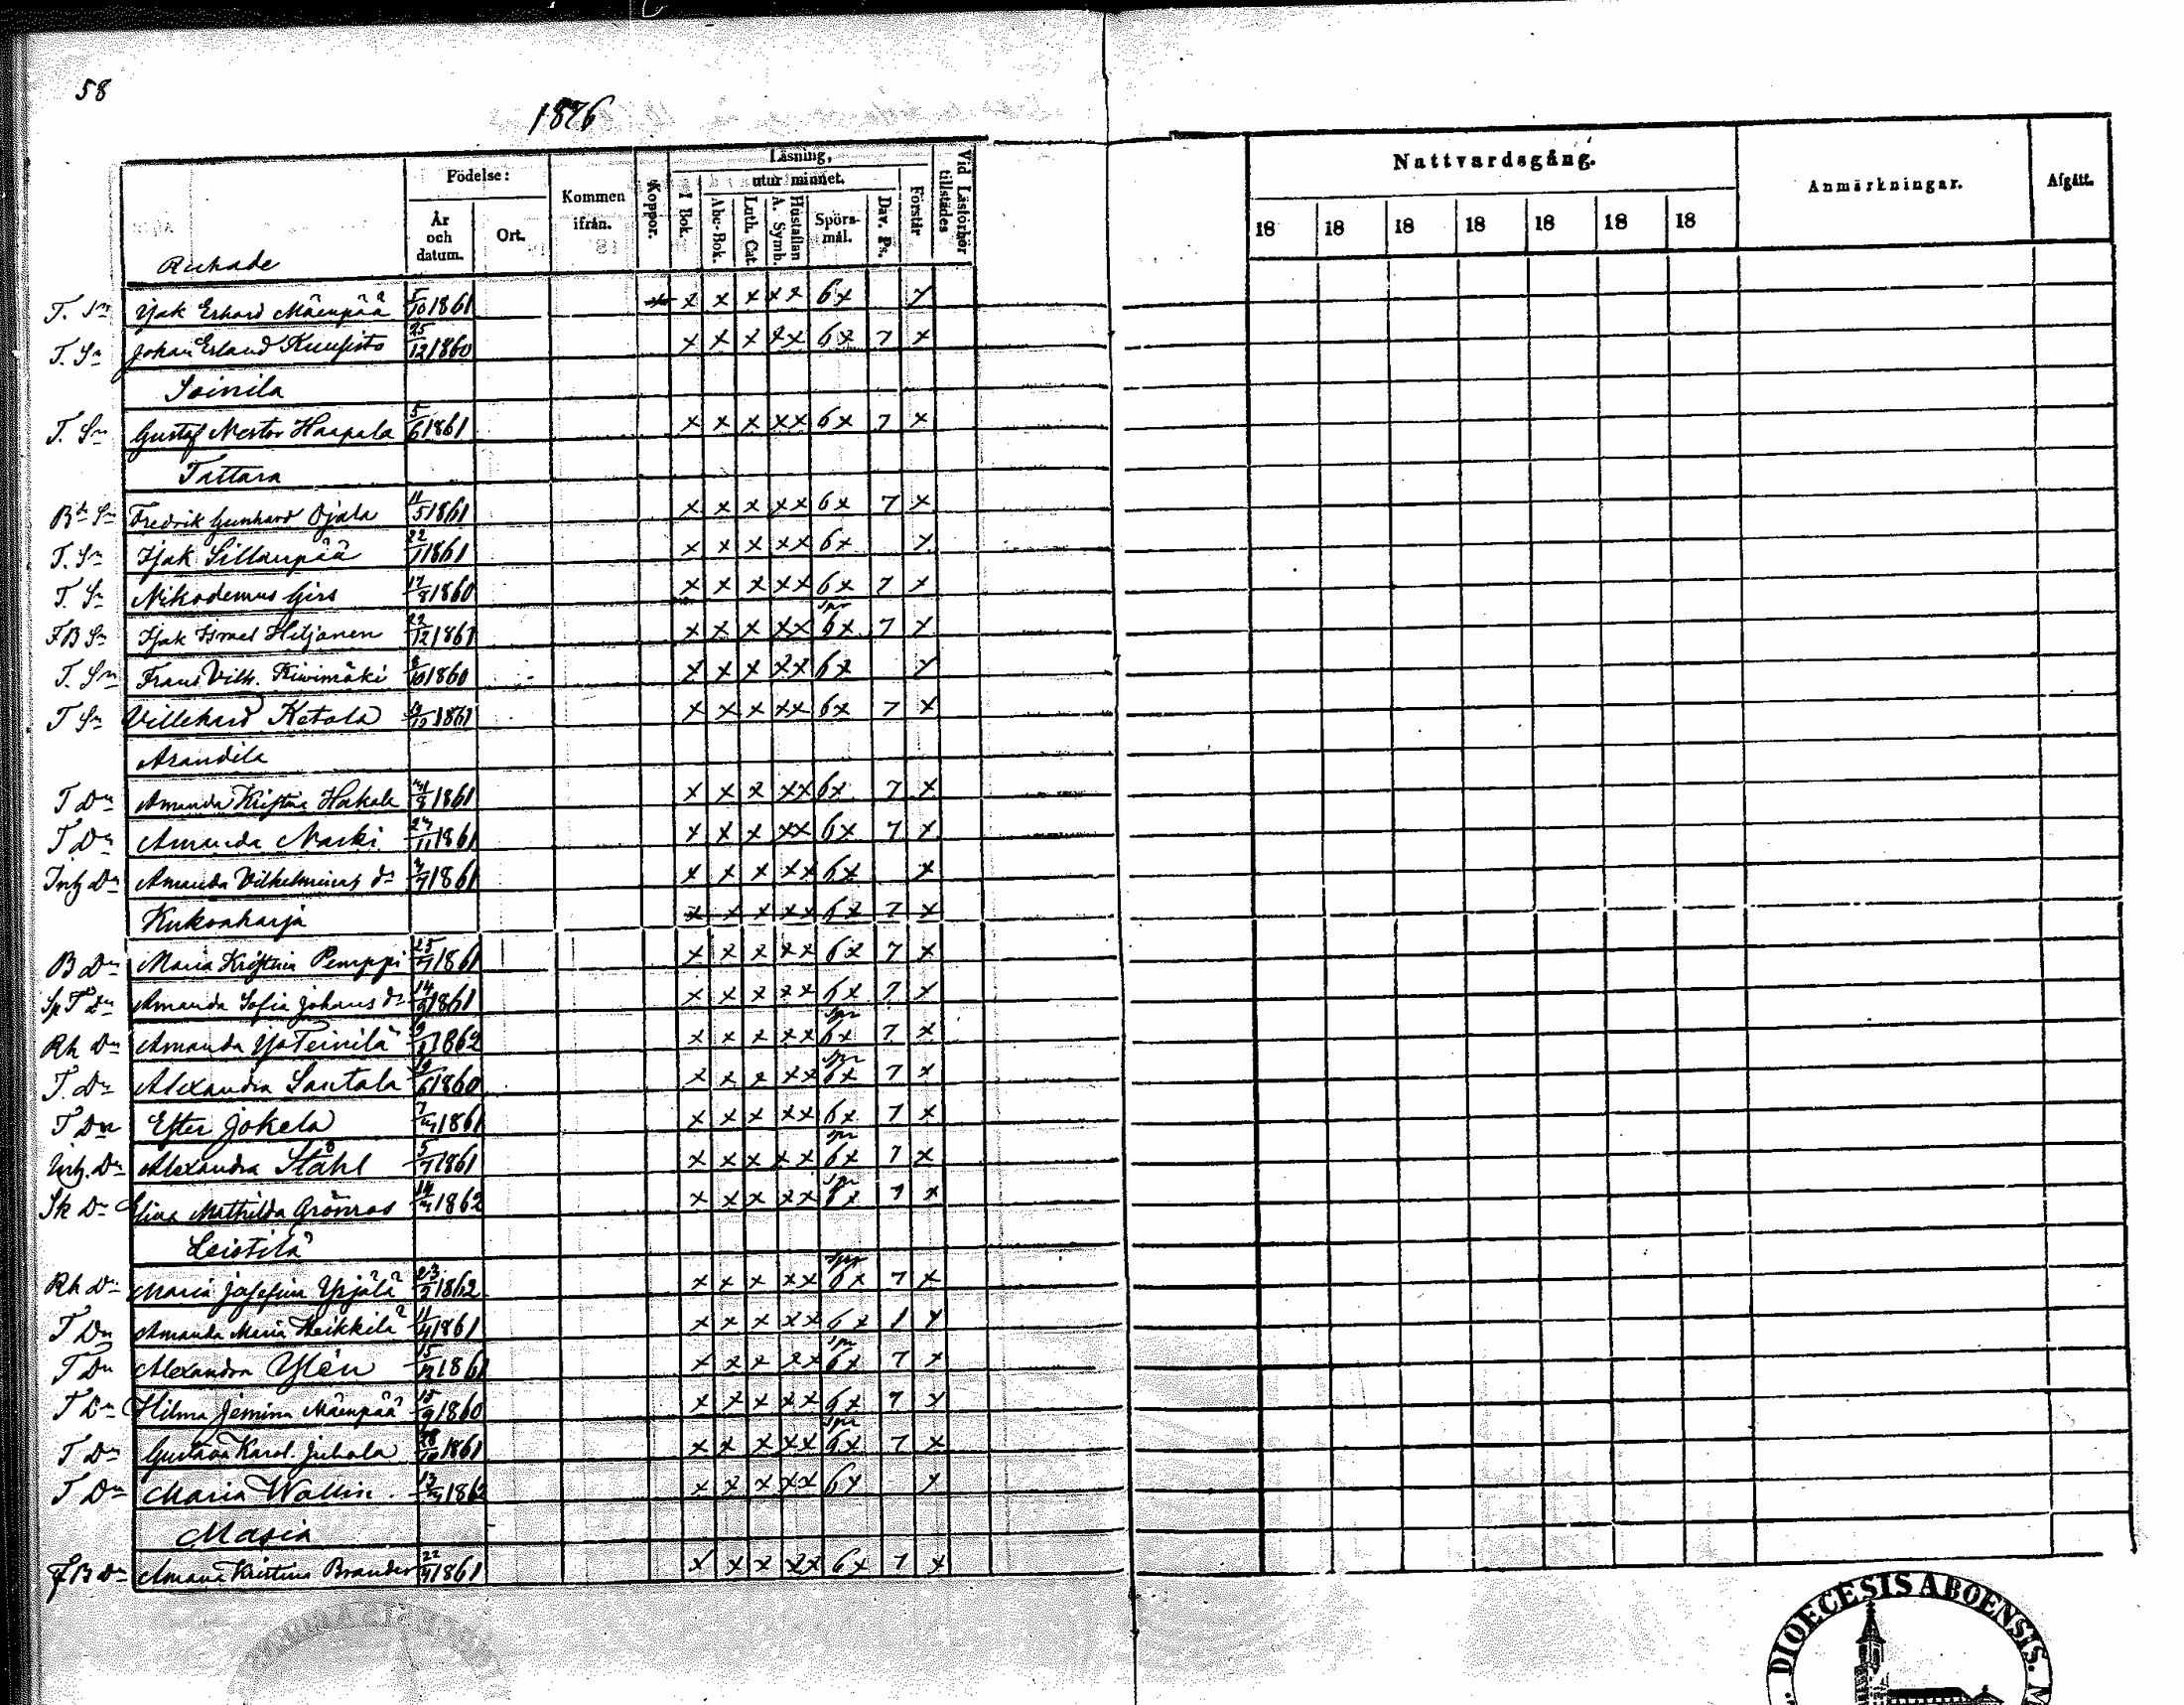 58
1876
Födelse:
År och datum.
Ort.
Kommen ifrån.
Koppor.
Läsning,
utur minnet.
I Bok.
Abc-Bok.
Luth. Cat.
Hustaflan A. Symb.
Spörs-mål.
Dav. Ps.
Förstår
Vid Läsförhör tillstädes
Nattvardsgång.
18 18 18 18 18 18 18
Anmärkningar.
Afgått.
Ruhade
T. Sn Isak Erhard Mäenpää 5/10 1861 x x x x x 6x x
T. Sn Johan Erland Kuusisto 25/12 1860 x x x x x 6x 7 x
Soinila
T. Sn Gustaf Nestor Haapala 5/6 1861 x x x x x 6x 7 x
Tattara
Sn Fredrik Gunhard Ojala 11/5 1861 x x x x x 6x 7 x
T. Sn Isak Sillanpää 22/1 1861 x x x x x 6x x
T. Sn Nikodemus Girs 17/8 1860 x x x x x 6x 7 x
FB Sn Isak Israel Hiljanen 22/12 1861 x x x x x spr 6x 7 x
T. Sn Frans Vilh. Kivimäki 8/10 1860 x x x x x 6x x
T Sn Villehard Ketola 1861 x x x x x 6x 7 x
Arandila
T Dn Amanda Kristina Hakala 1861 x x x x x 6x 7 x
T Dn Amanda Marki 1861 x x x x x 6x 7 x
Inh Dn Amanda Vilhelmina dr 1861 x x x x x 6x x
Kukonharja x x x x x 6x 7 x
B Dn Maria Kristina Pemppi 25/7 1861 x x x x x 6x 7 x
Sp T Dn Amanda Sofia Johans dr 1861 x x x x x 6x 7 x
Rh Dn Amanda Teinilä 1862 x x x x x spr 6x 7 x
T. Dn Alexandra Santala 1860 x x x x x spr 6x 7 x
T Dn Ester Jokela 1861 x x x x x 6x 7 x
Inh. Dn Alexandra Ståhl 5/7 1861 x x x x x spr 6x 7 x
Sk Dn Elina Mathilda Grönroos 1862 x x x x x spr 6x 7 x
Leistilä
Rh Dn Maria Josefina Yrjälä 1862 x x x x x spr 6x 7 x
T Dn Amanda Maria Heikkilä 11/4 1861 x x x x x 6x 7 x
T Dn Alexandra Ylén 1861 x x x x x spr 6x 7 x
T Dn Hilma Jemina Mäenpää 15/9 1860 x x x x x 6x 7 x
T Dn Gustava Karol. Juhola 28/10 1861 x x x x x spr 6x 7 x
T Dn Maria Wallin. 1862 x x x x x 6x x
Masia
FB Dn Amanda Kristina Brander 1861 x x x x x 6x 7 x
DIOECESIS ABOENSIS.